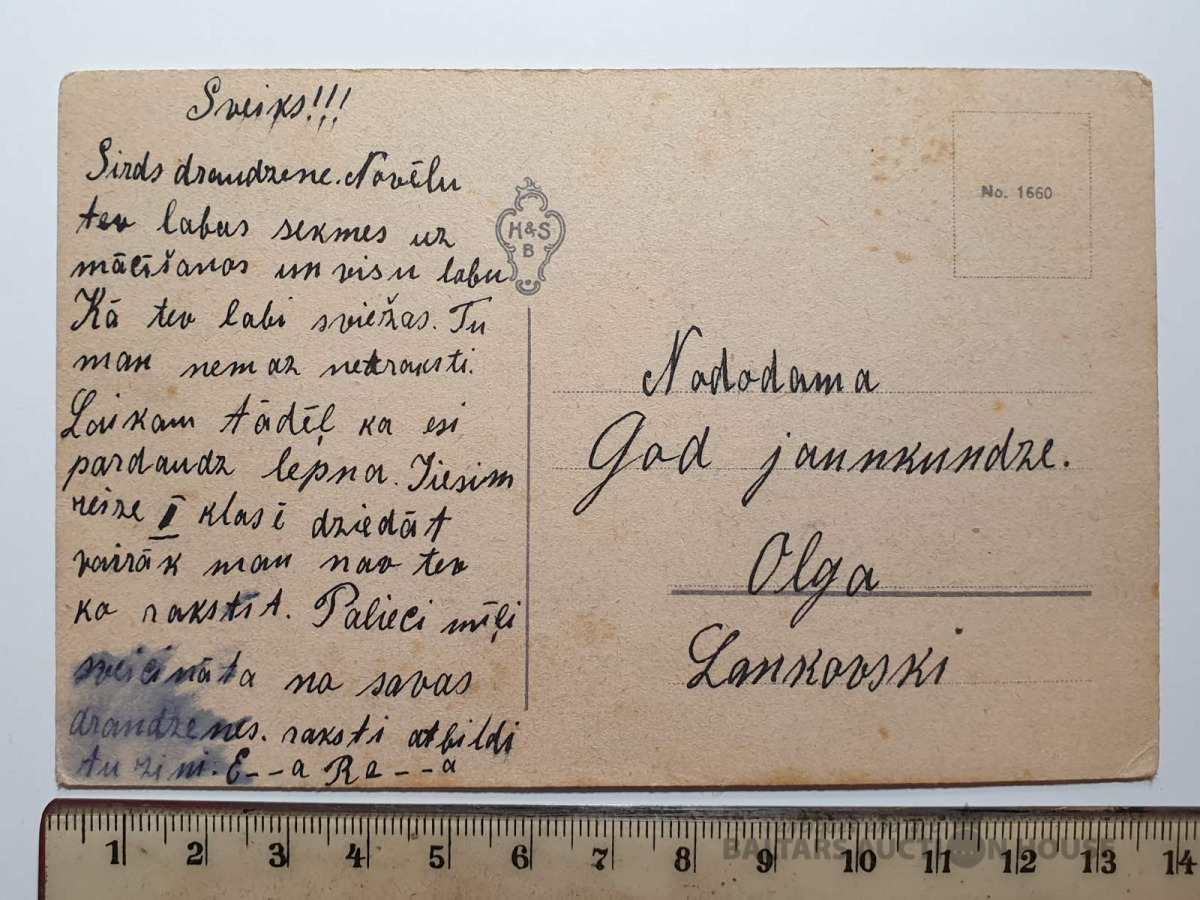 Sveiks!!!
Sirds draudzene. Novēlu
tev labas sekmes uz
mācīšanos un visu labu
Kā tev labi sviežas. Tu
man nemaz netraksti.
Laikam tādēļ ka esi
pardaudz lepna. Iesim
reize II klasē dziedāt
vairāk man nav tev
ko rakstīt. Palieci mīļi
sveicināta no savas
draudzenes. raksti atbildi
tu zini. E--a Re---a
H&S
B
No. 1660
Nododama
God jaunkundze.
Olga
Lankovski
1 2 3 4 5 6 7 8 9 10 11 12 13 14
BALTARS AUCTION HOUSE